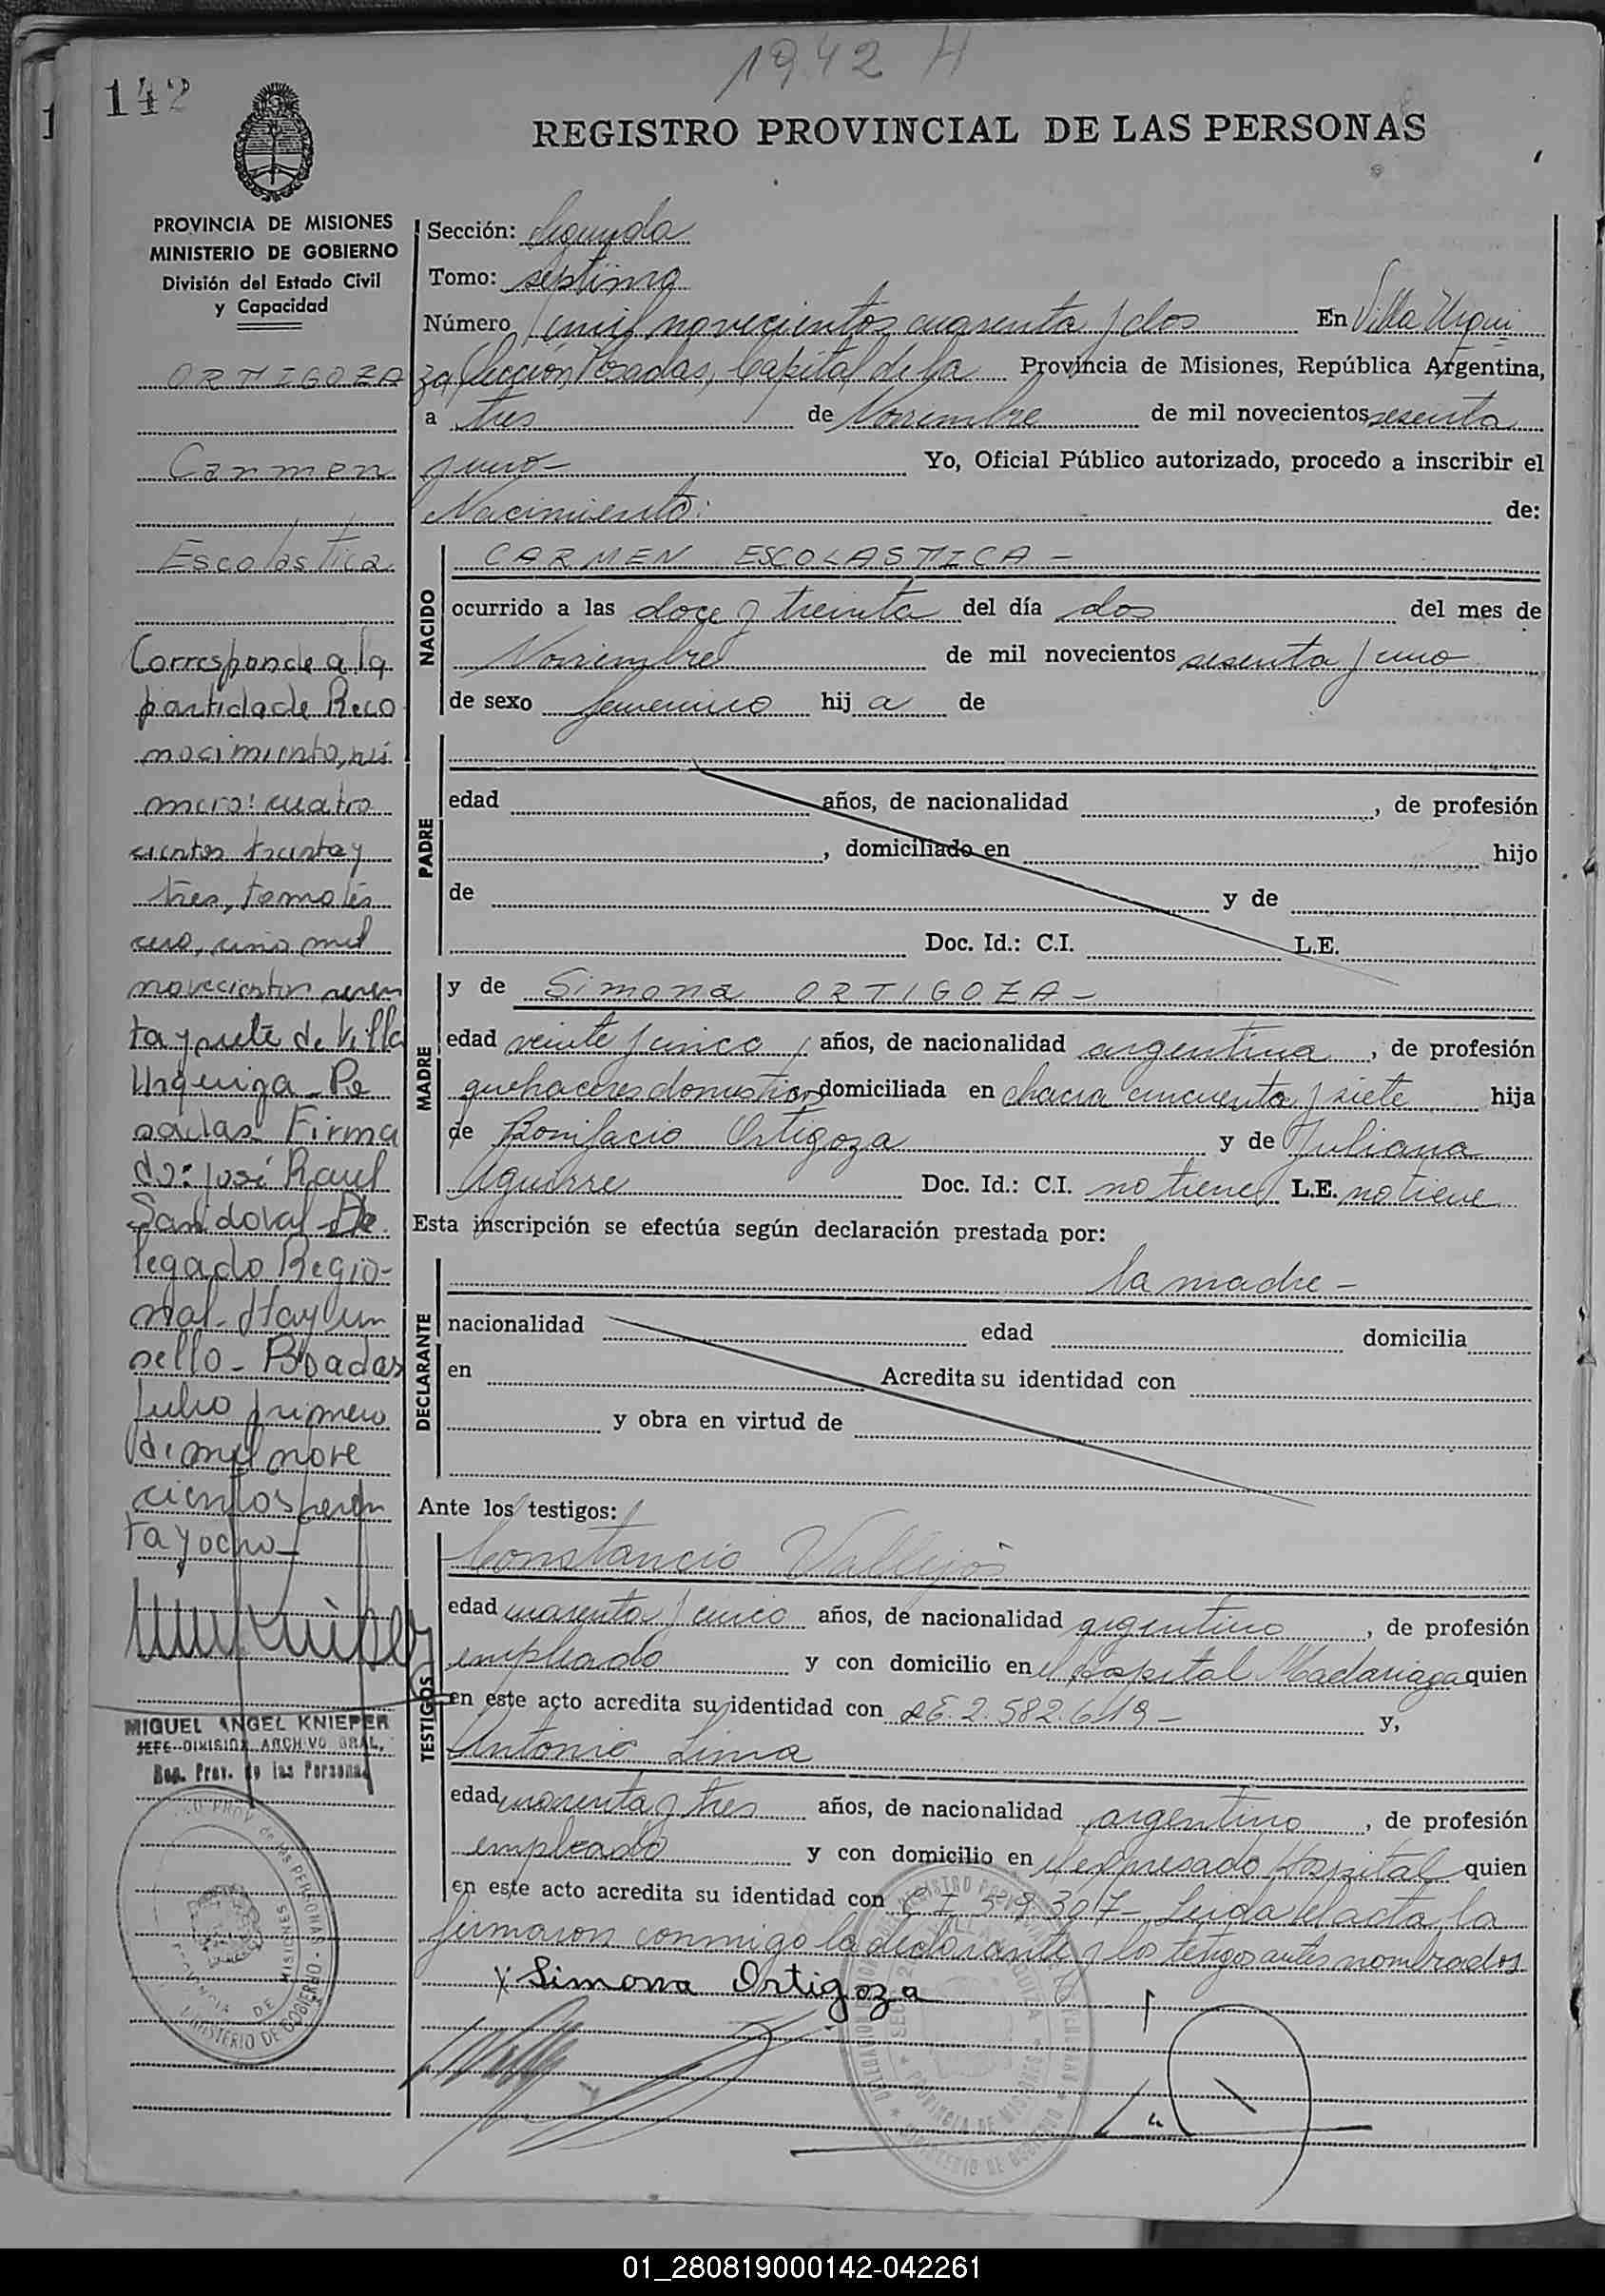 1942 H
142
REGISTRO PROVINCIAL DE LAS PERSONAS
PROVINCIA DE MISIONES
MINISTERIO DE GOBIERNO
División del Estado Civil
y Capacidad
ORTIGOZA
Carmen
Escolástica
Corresponde a la
partida de Reco
nocimiento, nú
mero: cuatro
cientos treinta y
tres, tomo ter
cero, año mil
novecientos seten
ta y siete de Villa
Urquiza - Po
sadas Firma
do: José Raul
Sandoval - De
legado Regio-
nal - Hay un
sello - Posadas
Julio primero
de mil nove
cientos seten
ta y ocho -
MIGUEL ANGEL KNIEPER
JEFE DIVISION ARCHIVO GRAL.
Reg. Prov. de las Personas
Sección: Segunda
Tomo: séptimo
Número mil novecientos cuarenta y dos En Villa Urqui
za, Sección Posadas, Capital de la Provincia de Misiones, República Argentina,
a tres de Noviembre de mil novecientos sesenta
y uno - Yo, Oficial Público autorizado, procedo a inscribir el
Nacimiento: de:
NACIDO
CARMEN ESCOLASTICA -
ocurrido a las doce y treinta del día dos del mes de
Noviembre de mil novecientos sesenta y uno
de sexo femenino hij a de
PADRE
edad años, de nacionalidad , de profesión
, domiciliado en hijo
de y de
Doc. Id.: C.I. L.E.
MADRE
y de Simona ORTIGOZA -
edad veinte y cinco años, de nacionalidad argentina , de profesión
quehaceres domesticos domiciliada en chacra cincuenta y siete hija
de Bonifacio Ortigoza y de Juliana
Aguirre Doc. Id.: C.I. no tiene L.E. no tiene
Esta inscripción se efectúa según declaración prestada por:
DECLARANTE
la madre -
nacionalidad edad domicilia
en Acredita su identidad con
y obra en virtud de
Ante los testigos:
TESTIGOS
Constancio Vallejos
edad cuarenta y cinco años, de nacionalidad argentino , de profesión
empleado y con domicilio en el Hospital Madariaga quien
en este acto acredita su identidad con LE. 2.582.619 - y,
Antonio Lima
edad cuarenta y tres años, de nacionalidad argentino , de profesión
empleado y con domicilio en el expresado Hospital quien
en este acto acredita su identidad con 59.307 - Leida el acta la
firmaron conmigo la declarante y los testigos antes nombrados
x Simona Ortigoza
01_280819000142-042261